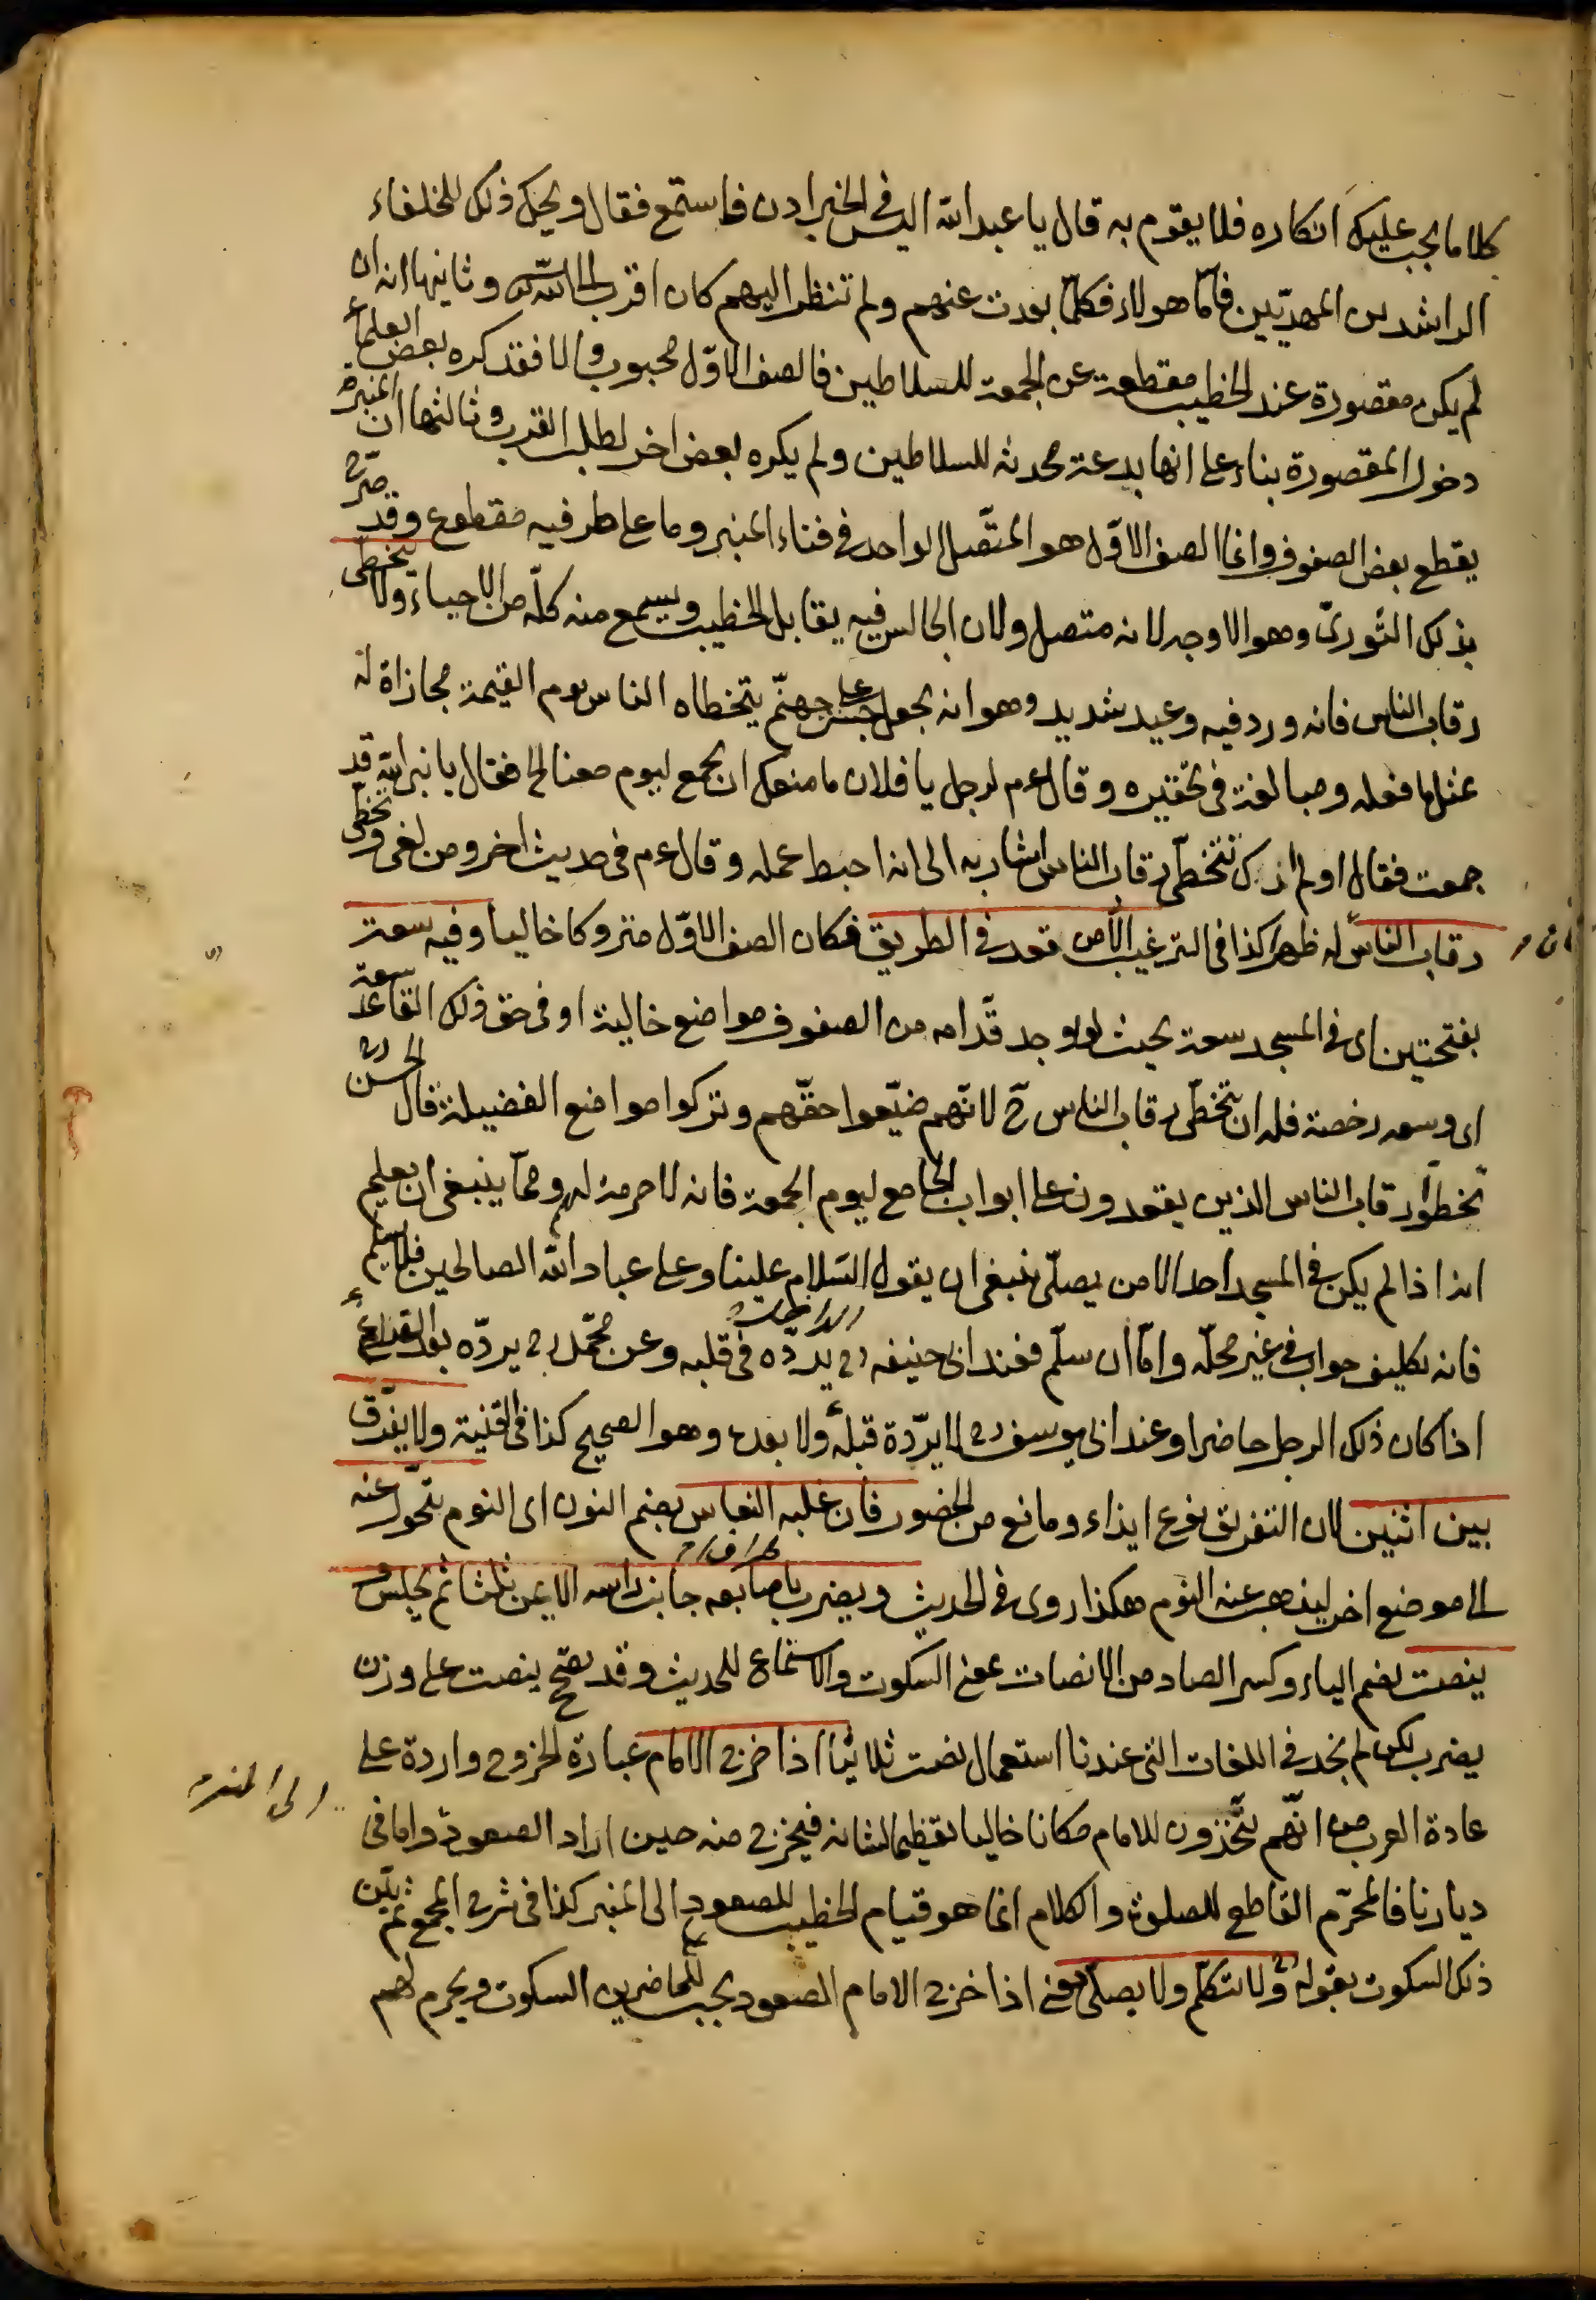 كلاما يجب عليك انكاره فلا يقوم به قال يا عبد الله اليس في الخبر ادن فاستمع فقال ويحك ذلك للخلفاء
الراشدين المهديين فاما هولاء فكلما بعدت عنهم ولم تنظر اليهم كان اقرب الى الله وثانيها انه ان
لم يكن مقصورة عند الخطيب مقطعة عن الجمعة للسلاطين فالصف الاول محبوب والا فقد كره بعض العلماء
دخول المقصورة بناء على انها بدعة محدثة للسلاطين ولم يكره بعض اخر لطلب القرب وثالثها ان المنبر
يقطع بعض الصفوف وانما الصف الاول هو المتصل الواحد في فناء المنبر وما على طرفيه مقطوع وقد صرح
بذلك الثوري وهو الاوجه لانه متصل ولان الجالس فيه يقابل الخطيب ويسمع منه كله من الاحياء ولا يتخطى
رقاب الناس فانه ورد فيه وعيد شديد وهو انه يجعل جسرا على جهنم يتخطاه الناس يوم القيمة مجازاة له
بمثل ما فعله ومبالغة في تحقيره وقال عم لرجل يا فلان ما منعك ان تجمع ليوم معنا الخ فقال يا نبي الله قد
جمعت فقال اولم ارك تتخطى رقاب الناس اشار به الى انه احبط عمله وقال عم في حديث اخر ومن لغى وتخطى
رقاب الناس له ظهرا كذا في الترغيب الا من قعد في الطريق فكان الصف الاول متروكا خاليا وفيه سعة
بفتحتين اى في المسجد سعة بحيث لو يوجد قدامه من الصفوف مواضع خالية او في حق ذلك القاعد سعة
اى وسعه رخصة فله ان يتخطى رقاب الناس ح لانهم ضيعوا حقهم وتركوا مواضع الفضيلة قال الحسن رح
تخطوا رقاب الناس الذين يقعدون على ابواب الجامع ليوم الجمعة فانه لا حرمة لهم ومما ينبغى ان يعلم
انه اذا لم يكن في المسجد احد الا من يصلى ينبغى ان يقول السلام علينا وعلى عباد الله الصالحين فلا يسلم
فانه تكليف جواب في غير محله واما ان سلم فعند ابى حنيفه رح يرده في قلبه وعن محمد رح يرده بعد القراءة
اذا كان ذلك الرجل حاضرا وعند ابى يوسف رح لا يرده قبله ولا بعده وهو الصحيح كذا في القنية ولا يفرق
بين اثنين لان التفريق نوع ايذاء ومانع من الحضور فان غلبه النعاس بضم النون اى النوم يتحول عنه
الى موضع اخر ليذهب عنه النوم هكذا روى في الحديث ويضرب باصابعه جانب راسه الايمن ثلثا ثم يجلس و
ينصت بضم الياء وكسر الصاد من الانصات بمعنى السكوت والاستماع للحديث وقد يفتح ينصت على وزن
يضرب لكن لم نجد في اللغات التى عندنا استعمال نصت ثلاثيا اذا خرج الامام عبارة الخروج واردة على
عادة العرب من انهم يتخذون للامام مكانا خاليا تعظيما لشانه فيخرج منه حين اراد الصعود واما في
ديارنا فالمحرم القاطع للصلوة والكلام انما هو قيام الخطيب للصعود الى المنبر كذا في شرح المجمع ثم بين
ذلك السكوت بقوله ولا يتكلم ولا يصلى يعنى اذا خرج الامام للصعود يجب للحاضرين السكوت ويحرم لهم
الى المنبر